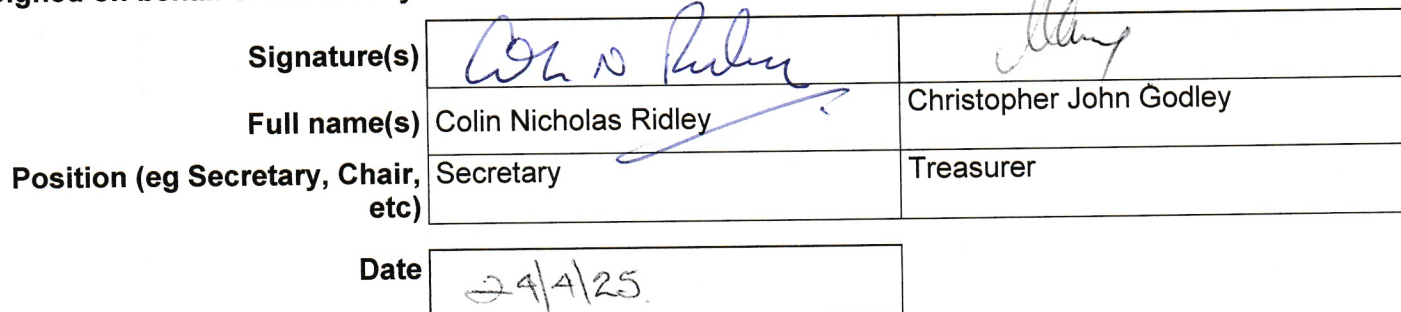 Signature(s) Colin N Ridley
Full name(s) Colin Nicholas Ridley Christopher John Godley
Position (eg Secretary, Chair, Secretary Treasurer
etc)
Date 24/4/25.